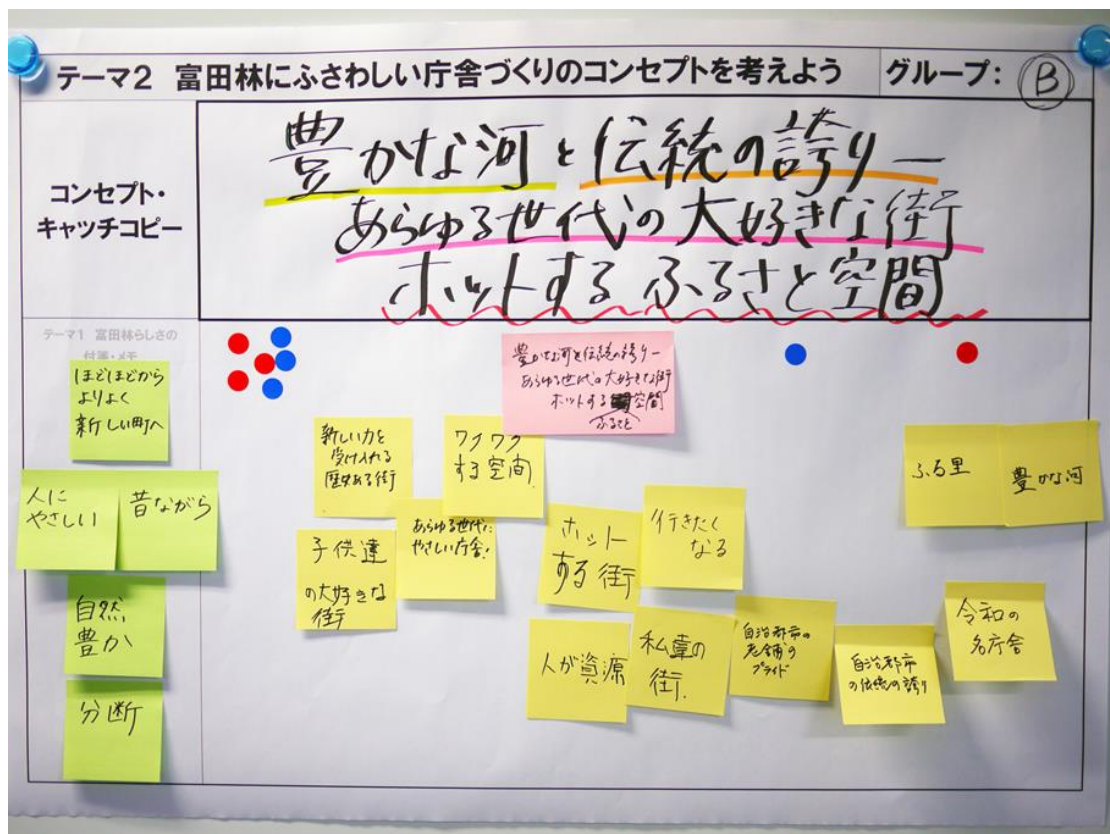 テーマ2 富田林にふさわしい庁舎づくりのコンセプトを考えよう
グループ: B
コンセプト・
キャッチコピー
豊かな河と伝統の誇りー
あらゆる世代の大好きな街
ホットする ふるさと空間
テーマ1 富田林らしさの
付箋・メモ
ほどほどから
よりよく
新しい町へ
人に
やさしい
昔ながら
自然
豊か
分断
豊かな河と伝統の誇りー
あらゆる世代の大好きな街
ホットする 空間
ふるさと
新しい力を
受け入れる
歴史ある街
ワクワク
する空間
子供達
の大好きな
街
あらゆる世代に
やさしい庁舎!
ホット
する街
行きたく
なる
人が資源
私達の
街.
自治都市の
老舗の
プライド
自治都市
の伝統の誇り
ふる里
豊かな河
令和の
名庁舎